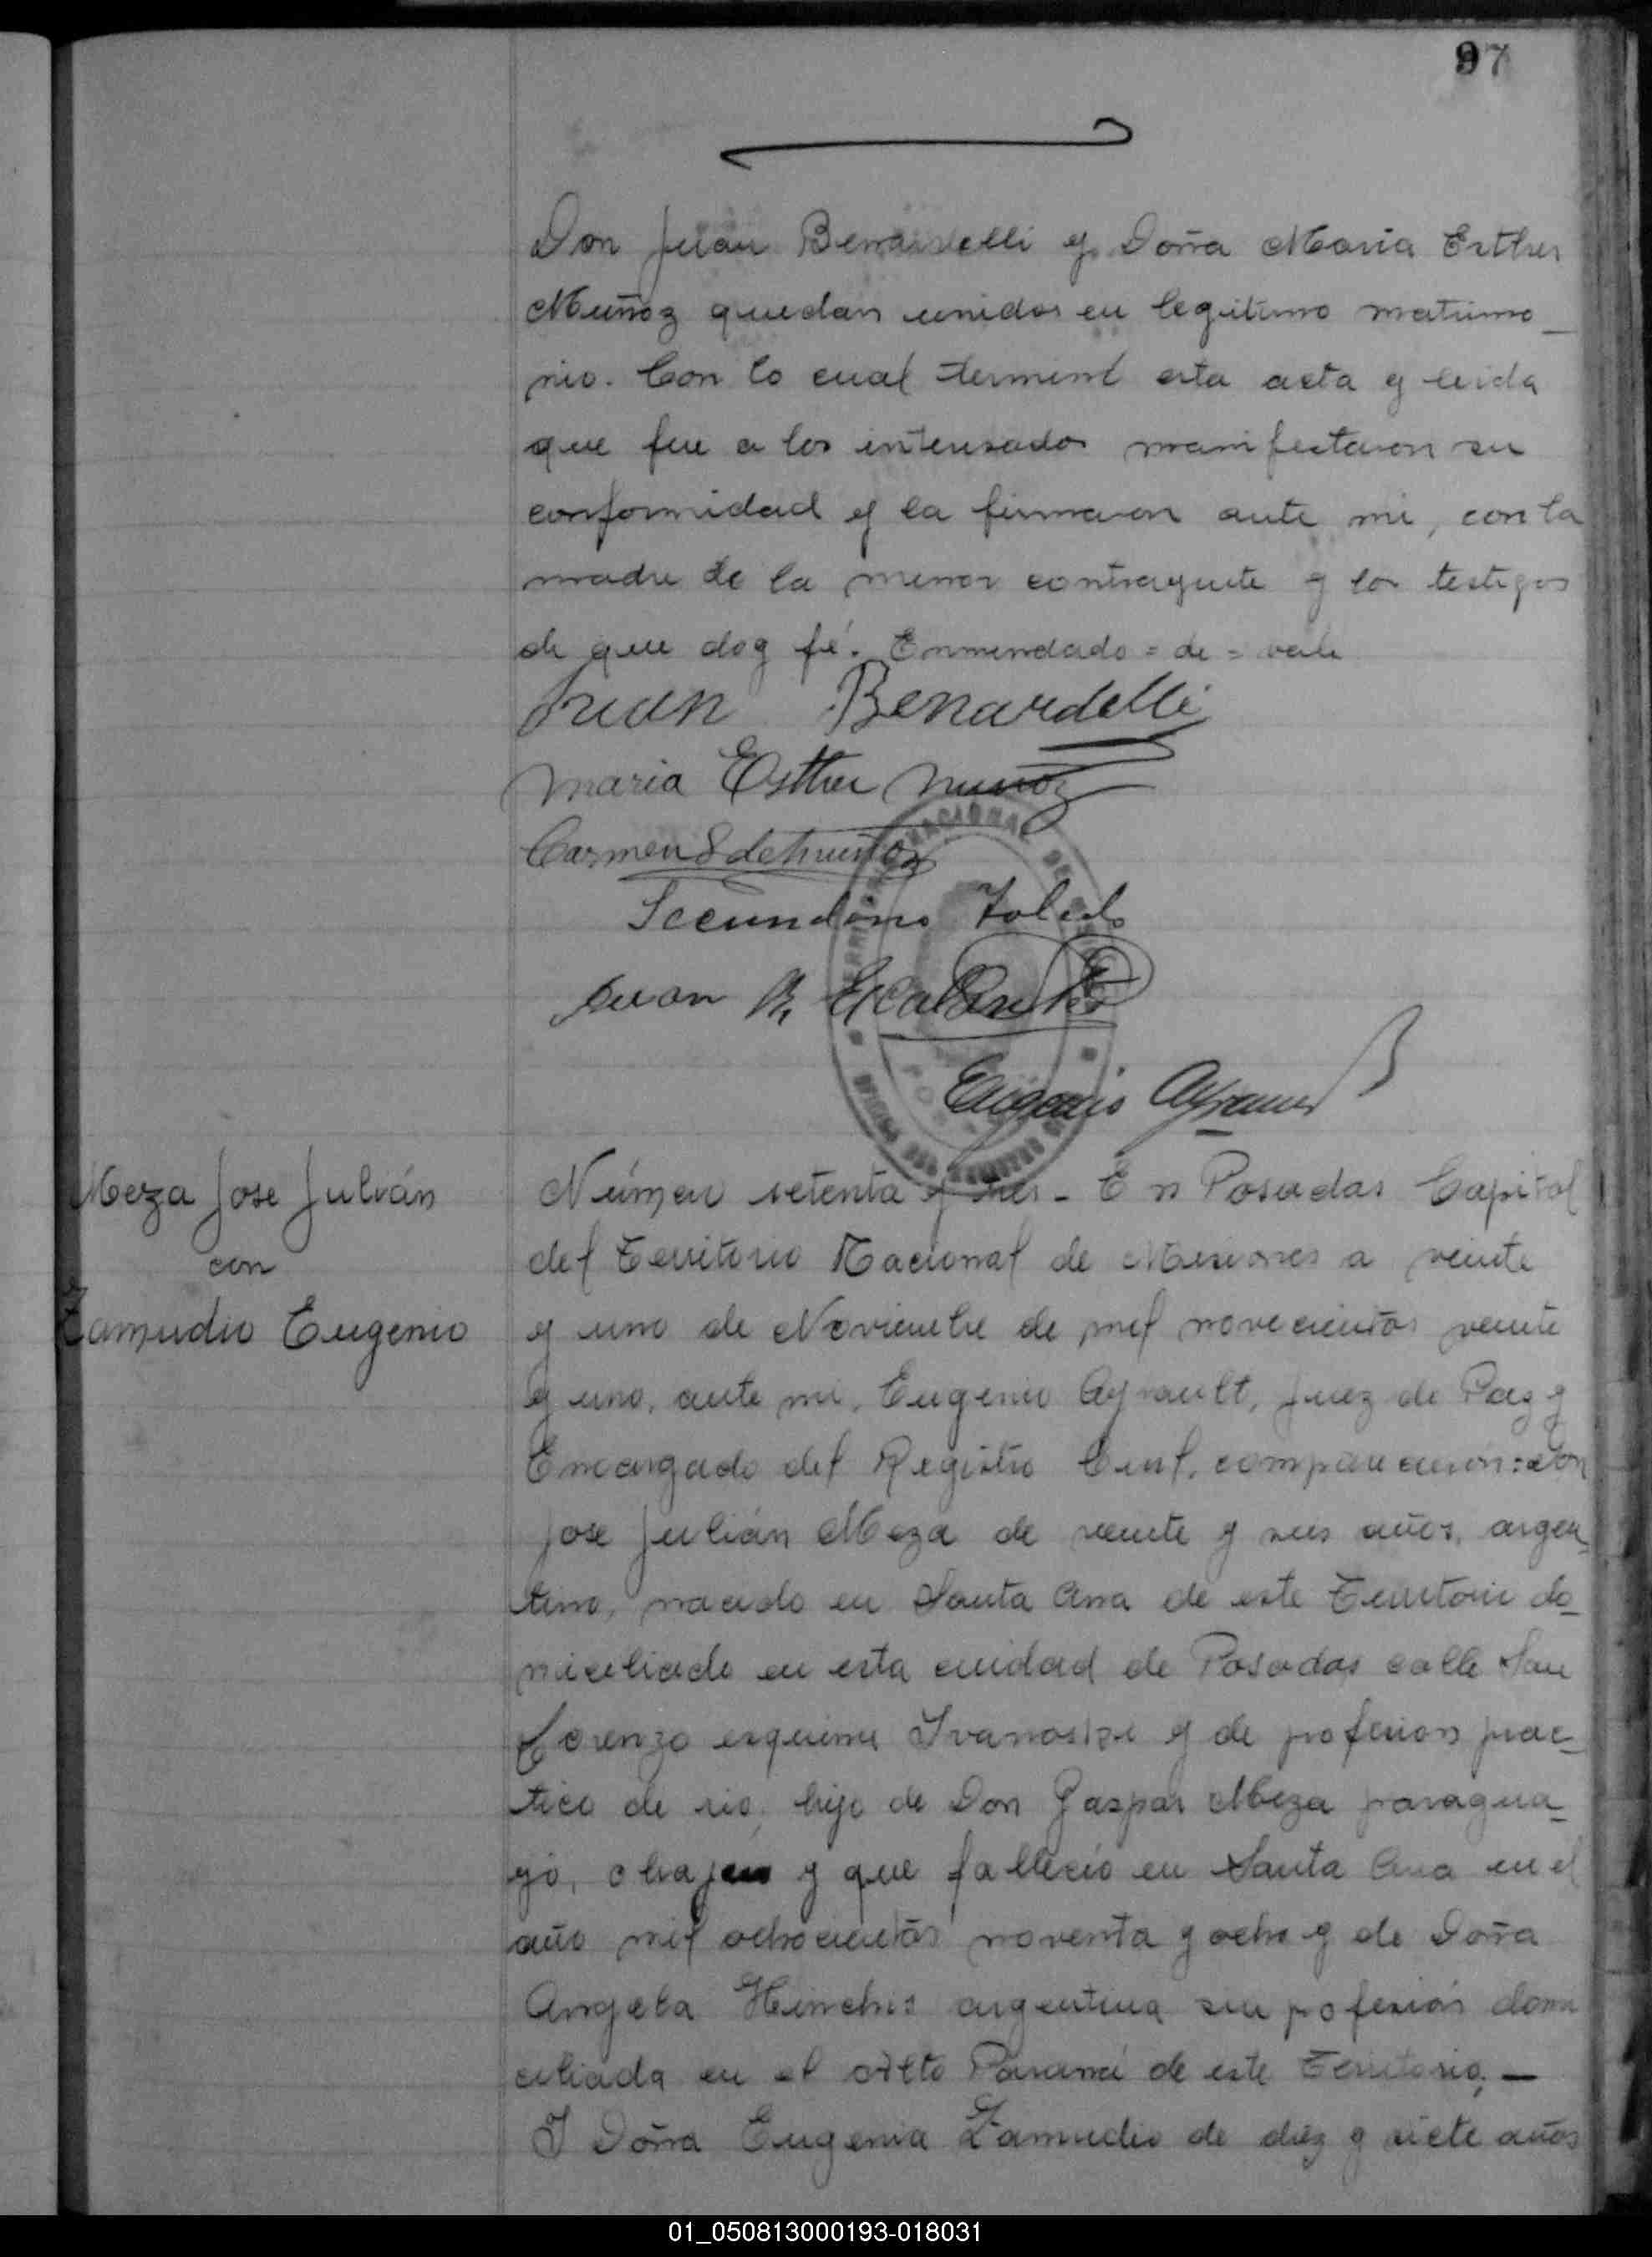 97
Don Juan Benardelli y Doña Maria Esther
Muñoz quedan unidos en legitimo matrimo_
nio. Con lo cual terminó esta acta y leida
que fue a los interesados manifestaron su
conformidad y la firmaron ante mi, con la
madre de la menor contrayente y los testigos
de que doy fé. Enmendado = de = vale
Juan Benardelli
Maria Esther Muñoz
Carmen S de Muñoz
Secundino Toledo
Juan B. Escalante
Eugenio Ayrault
Meza Jose Julián
con
Zamudio Eugenio
Número setenta y tres - En Posadas Capital
del Territorio Nacional de Misiones a veinte
y uno de Noviembre de mil novecientos veinte
y uno, ante mi, Eugenio Ayrault, Juez de Paz y
Encargado del Registro Civil, comparecieron: don
Jose Julián Meza de veinte y seis años, argen_
tino, nacido en Santa Ana de este Territorio do_
miciliado en esta ciudad de Posadas calle San
Lorenzo esquina Ivanoski y de profesion prac_
tico de rio, hijo de Don Gaspar Meza paragua_
yo, y que falleció en Santa Ana en el
año mil ochocientos noventa y ocho y de Doña
Angela argentina sin profesión domi
ciliada en el Alto Paraná de este Territorio. —
Y Doña Eugenia Zamudio de diez y siete años
01_050813000193-018031